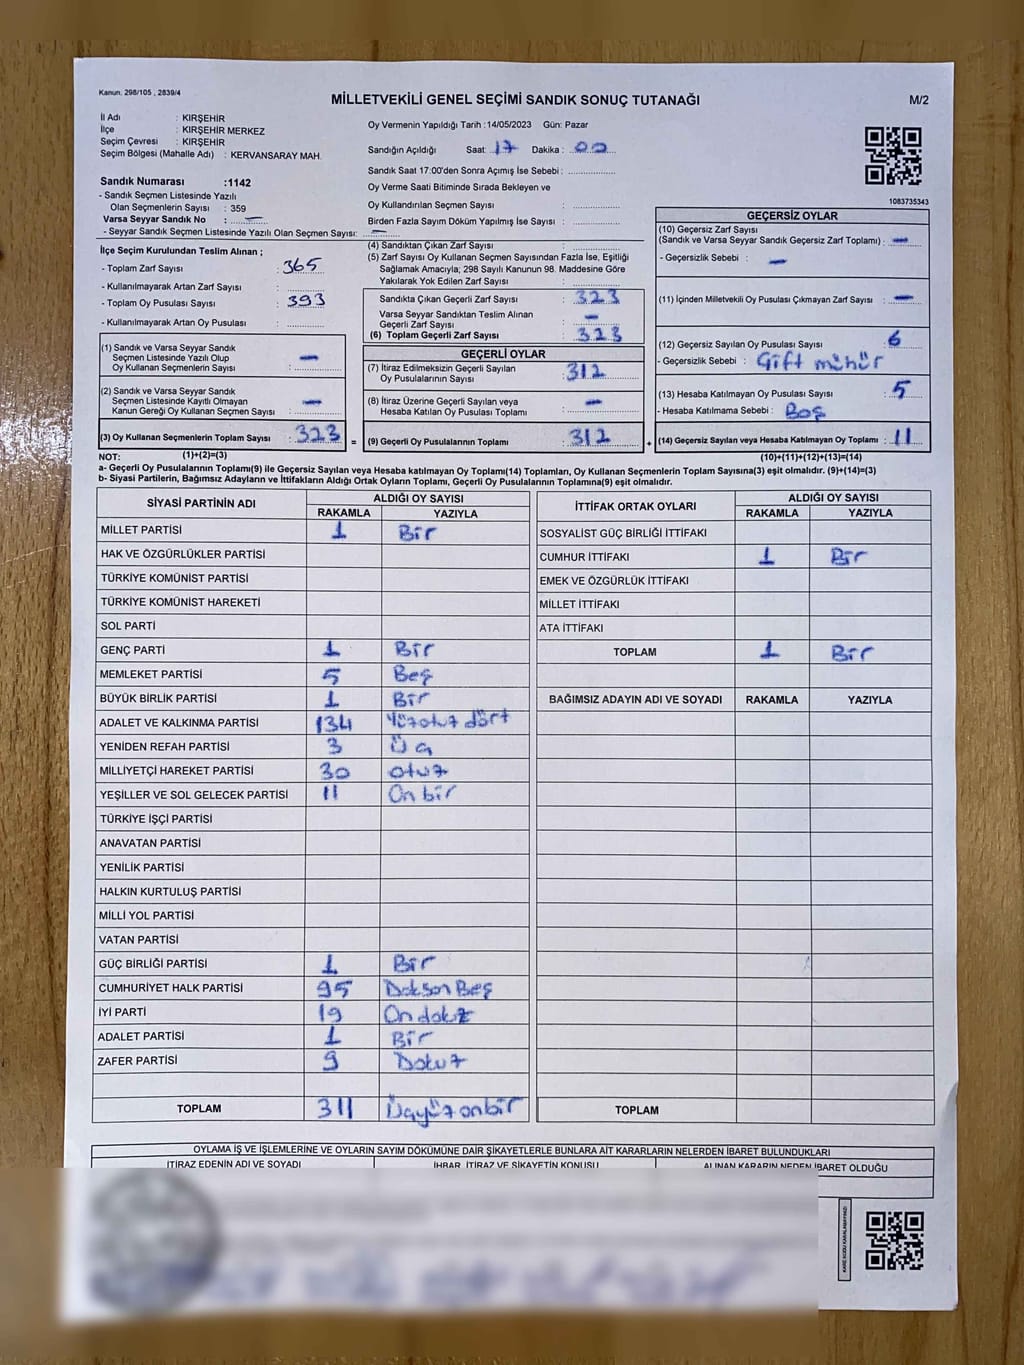 Kanun. 298/105 , 2839/4
MİLLETVEKİLİ GENEL SEÇİMİ SANDIK SONUÇ TUTANAĞI
M/2
İl Adı : KIRŞEHİR
İlçe : KIRŞEHİR MERKEZ
Seçim Çevresi : KIRŞEHİR
Seçim Bölgesi (Mahalle Adı) : KERVANSARAY MAH.
Sandık Numarası :1142
- Sandık Seçmen Listesinde Yazılı
Olan Seçmenlerin Sayısı : 359
Varsa Seyyar Sandık No : —
- Seyyar Sandık Seçmen Listesinde Yazılı Olan Seçmen Sayısı: —
Oy Vermenin Yapıldığı Tarih :14/05/2023 Gün: Pazar
Sandığın Açıldığı Saat: 17 Dakika : 00
Sandık Saat 17:00'den Sonra Açımış İse Sebebi :
Oy Verme Saati Bitiminde Sırada Bekleyen ve
Oy Kullandırılan Seçmen Sayısı :
Birden Fazla Sayım Döküm Yapılmış İse Sayısı :
1083735343
İlçe Seçim Kurulundan Teslim Alınan ;
- Toplam Zarf Sayısı : 365
- Kullanılmayarak Artan Zarf Sayısı :
- Toplam Oy Pusulası Sayısı : 393
- Kullanılmayarak Artan Oy Pusulası :
(1) Sandık ve Varsa Seyyar Sandık
Seçmen Listesinde Yazılı Olup
Oy Kullanan Seçmenlerin Sayısı : —
(2) Sandık ve Varsa Seyyar Sandık
Seçmen Listesinde Kayıtlı Olmayan
Kanun Gereği Oy Kullanan Seçmen Sayısı : —
(3) Oy Kullanan Seçmenlerin Toplam Sayısı : 323 =
(4) Sandıktan Çıkan Zarf Sayısı :
(5) Zarf Sayısı Oy Kullanan Seçmen Sayısından Fazla İse, Eşitliği
Sağlamak Amacıyla; 298 Sayılı Kanunun 98. Maddesine Göre
Yakılarak Yok Edilen Zarf Sayısı :
Sandıkta Çıkan Geçerli Zarf Sayısı : 323
Varsa Seyyar Sandıktan Teslim Alınan
Geçerli Zarf Sayısı : —
(6) Toplam Geçerli Zarf Sayısı : 323
GEÇERLİ OYLAR
(7) İtiraz Edilmeksizin Geçerli Sayılan
Oy Pusulalarının Sayısı : 312
(8) İtiraz Üzerine Geçerli Sayılan veya
Hesaba Katılan Oy Pusulası Toplamı : —
(9) Geçerli Oy Pusulalarının Toplamı : 312 +
GEÇERSİZ OYLAR
(10) Geçersiz Zarf Sayısı
(Sandık ve Varsa Seyyar Sandık Geçersiz Zarf Toplamı) : —
- Geçersizlik Sebebi : —
(11) İçinden Milletvekili Oy Pusulası Çıkmayan Zarf Sayısı : —
(12) Geçersiz Sayılan Oy Pusulası Sayısı : 6
- Geçersizlik Sebebi : Çift mühür
(13) Hesaba Katılmayan Oy Pusulası : 5
- Hesaba Katılmama Sebebi : Boş
(14) Geçersiz Sayılan veya Hesaba Katılmayan Oy Toplamı : 11
NOT: (1)+(2)=(3)
(10)+(11)+(12)+(13)=(14)
a- Geçerli Oy Pusulalarının Toplamı(9) ile Geçersiz Sayılan veya Hesaba katılmayan Oy Toplamı(14) Toplamları, Oy Kullanan Seçmenlerin Toplam Sayısına(3) eşit olmalıdır. (9)+(14)=(3)
b- Siyasi Partilerin, Bağımsız Adayların ve İttifakların Aldığı Ortak Oyların Toplamı, Geçerli Oy Pusulalarının Toplamına(9) eşit olmalıdır.
SİYASİ PARTİNİN ADI ALDIĞI OY SAYISI
RAKAMLA YAZIYLA
MİLLET PARTİSİ 1 Bir
HAK VE ÖZGÜRLÜKLER PARTİSİ
TÜRKİYE KOMÜNİST PARTİSİ
TÜRKİYE KOMÜNİST HAREKETİ
SOL PARTİ
GENÇ PARTİ 1 Bir
MEMLEKET PARTİSİ 5 Beş
BÜYÜK BİRLİK PARTİSİ 1 Bir
ADALET VE KALKINMA PARTİSİ 134 Yüzotuz dört
YENİDEN REFAH PARTİSİ 3 Üç
MİLLİYETÇİ HAREKET PARTİSİ 30 otuz
YEŞİLLER VE SOL GELECEK PARTİSİ 11 On bir
TÜRKİYE İŞÇİ PARTİSİ
ANAVATAN PARTİSİ
YENİLİK PARTİSİ
HALKIN KURTULUŞ PARTİSİ
MİLLİ YOL PARTİSİ
VATAN PARTİSİ
GÜÇ BİRLİĞİ PARTİSİ 1 Bir
CUMHURİYET HALK PARTİSİ 95 Doksan Beş
İYİ PARTİ 19 On dokuz
ADALET PARTİSİ 1 Bir
ZAFER PARTİSİ 9 Dokuz
TOPLAM 311 Üçyüz onbir
İTTİFAK ORTAK OYLARI ALDIĞI OY SAYISI
RAKAMLA YAZIYLA
SOSYALİST GÜÇ BİRLİĞİ İTTİFAKI
CUMHUR İTTİFAKI 1 Bir
EMEK VE ÖZGÜRLÜK İTTİFAKI
MİLLET İTTİFAKI
ATA İTTİFAKI
TOPLAM 1 Bir
BAĞIMSIZ ADAYIN ADI VE SOYADI RAKAMLA YAZIYLA
TOPLAM
OYLAMA İŞ VE İŞLEMLERİNE VE OYLARIN SAYIM DÖKÜMÜNE DAİR ŞİKAYETLERLE BUNLARA AİT KARARLARIN NELERDEN İBARET BULUNDUKLARI
İTİRAZ EDENİN ADI VE SOYADI İHBAR, İTİRAZ VE ŞİKAYETİN KONUSU ALINAN KARARIN NEDEN İBARET OLDUĞU